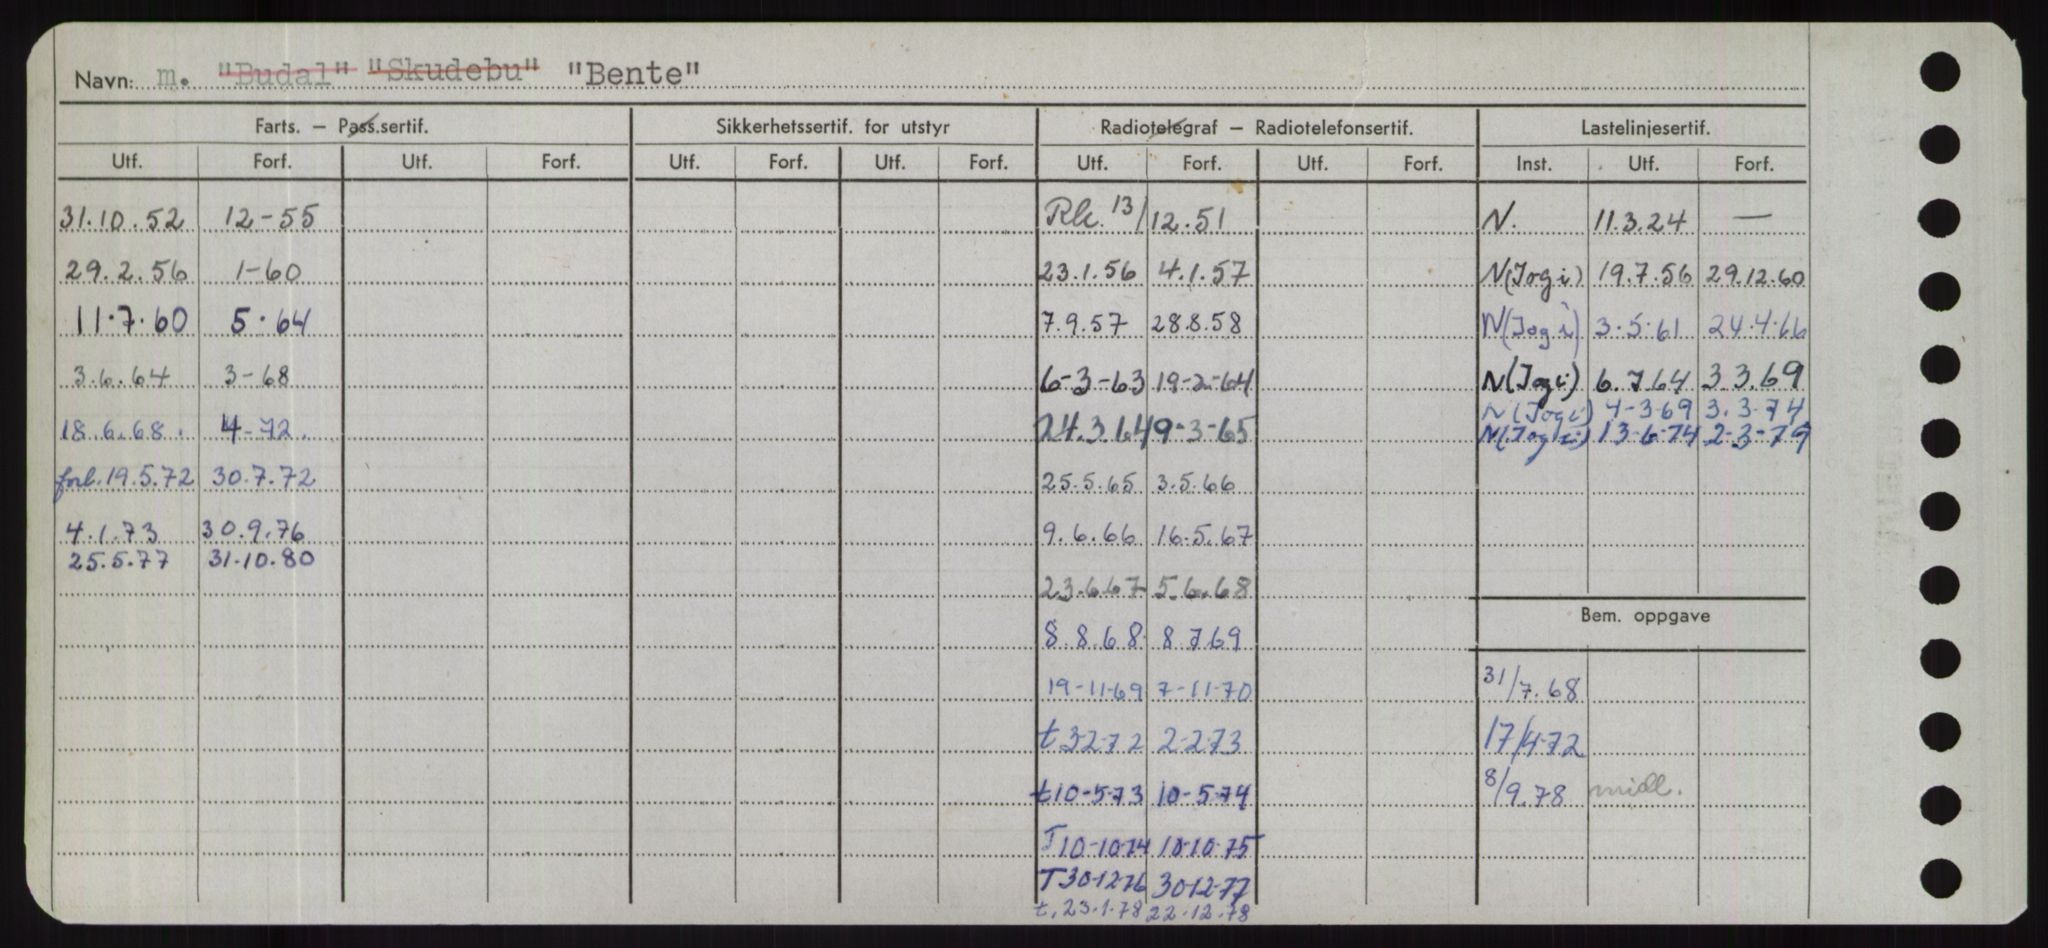 Navn: m. "Budal" "Skudebu" "Bente"
Farts. – Pass.sertif. Sikkerhetssertif. for utstyr Radiotelegraf – Radiotelefonsertif. Lastelinjesertif.
Utf. Forf. Utf. Forf. Utf. Forf. Utf. Forf. Utf. Forf. Utf. Forf. Inst. Utf. Forf.
31.10.52 12-55 Rk. 13/12.51 N. 11.3.24 —
29.2.56 1-60 23.1.56 4.1.57 N(Jogi) 19.7.56 29.12.60
11.7.60 5.64 7.9.57 28.8.58 N(Jogi) 3.5.61 24.4.66
3.6.64 3-68 6-3-63 19-2-64 N(Jogi) 6.7.64 3.3.69
N(Jogi) 4-3-69 3.3-74
18.6.68. 4-72. 24.3.64 9-3-65 N(Jogi) 13-6-74 2-3-79
forl. 19.5.72 30.7.72 25.5.65 3.5.66
4.1.73 30.9.76 9.6.66 16.5.67
25.5.77 31.10.80
23.6.67 5.6.68
Bem. oppgave
8.8.68 8.7.69
19-11-69 7-11-70 31/7.68
t 3-2-72 2-2-73 17/4-72
t 10-5-73 10-5-74 8/9.78 midl.
T 10-10-74 10-10-75
T 30-12-76 30-12-77
t. 23.1.78 22.12.78